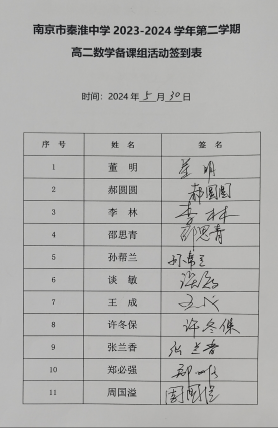 南京市秦淮中学 2023-2024 学年第二学期
高二数学备课组活动签到表
时间：2024 年 5 月 30 日
序 号 姓 名 签 名
1 董 明 董 明
2 郝圆圆 郝圆圆
3 李 林 李 林
4 邵思青 邵思青
5 孙帮兰 孙帮兰
6 谈 敏 谈敏
7 王 成 王成
8 许冬保 许冬保
9 张兰香 张兰香
10 郑必强 郑必强
11 周国溢 周国溢